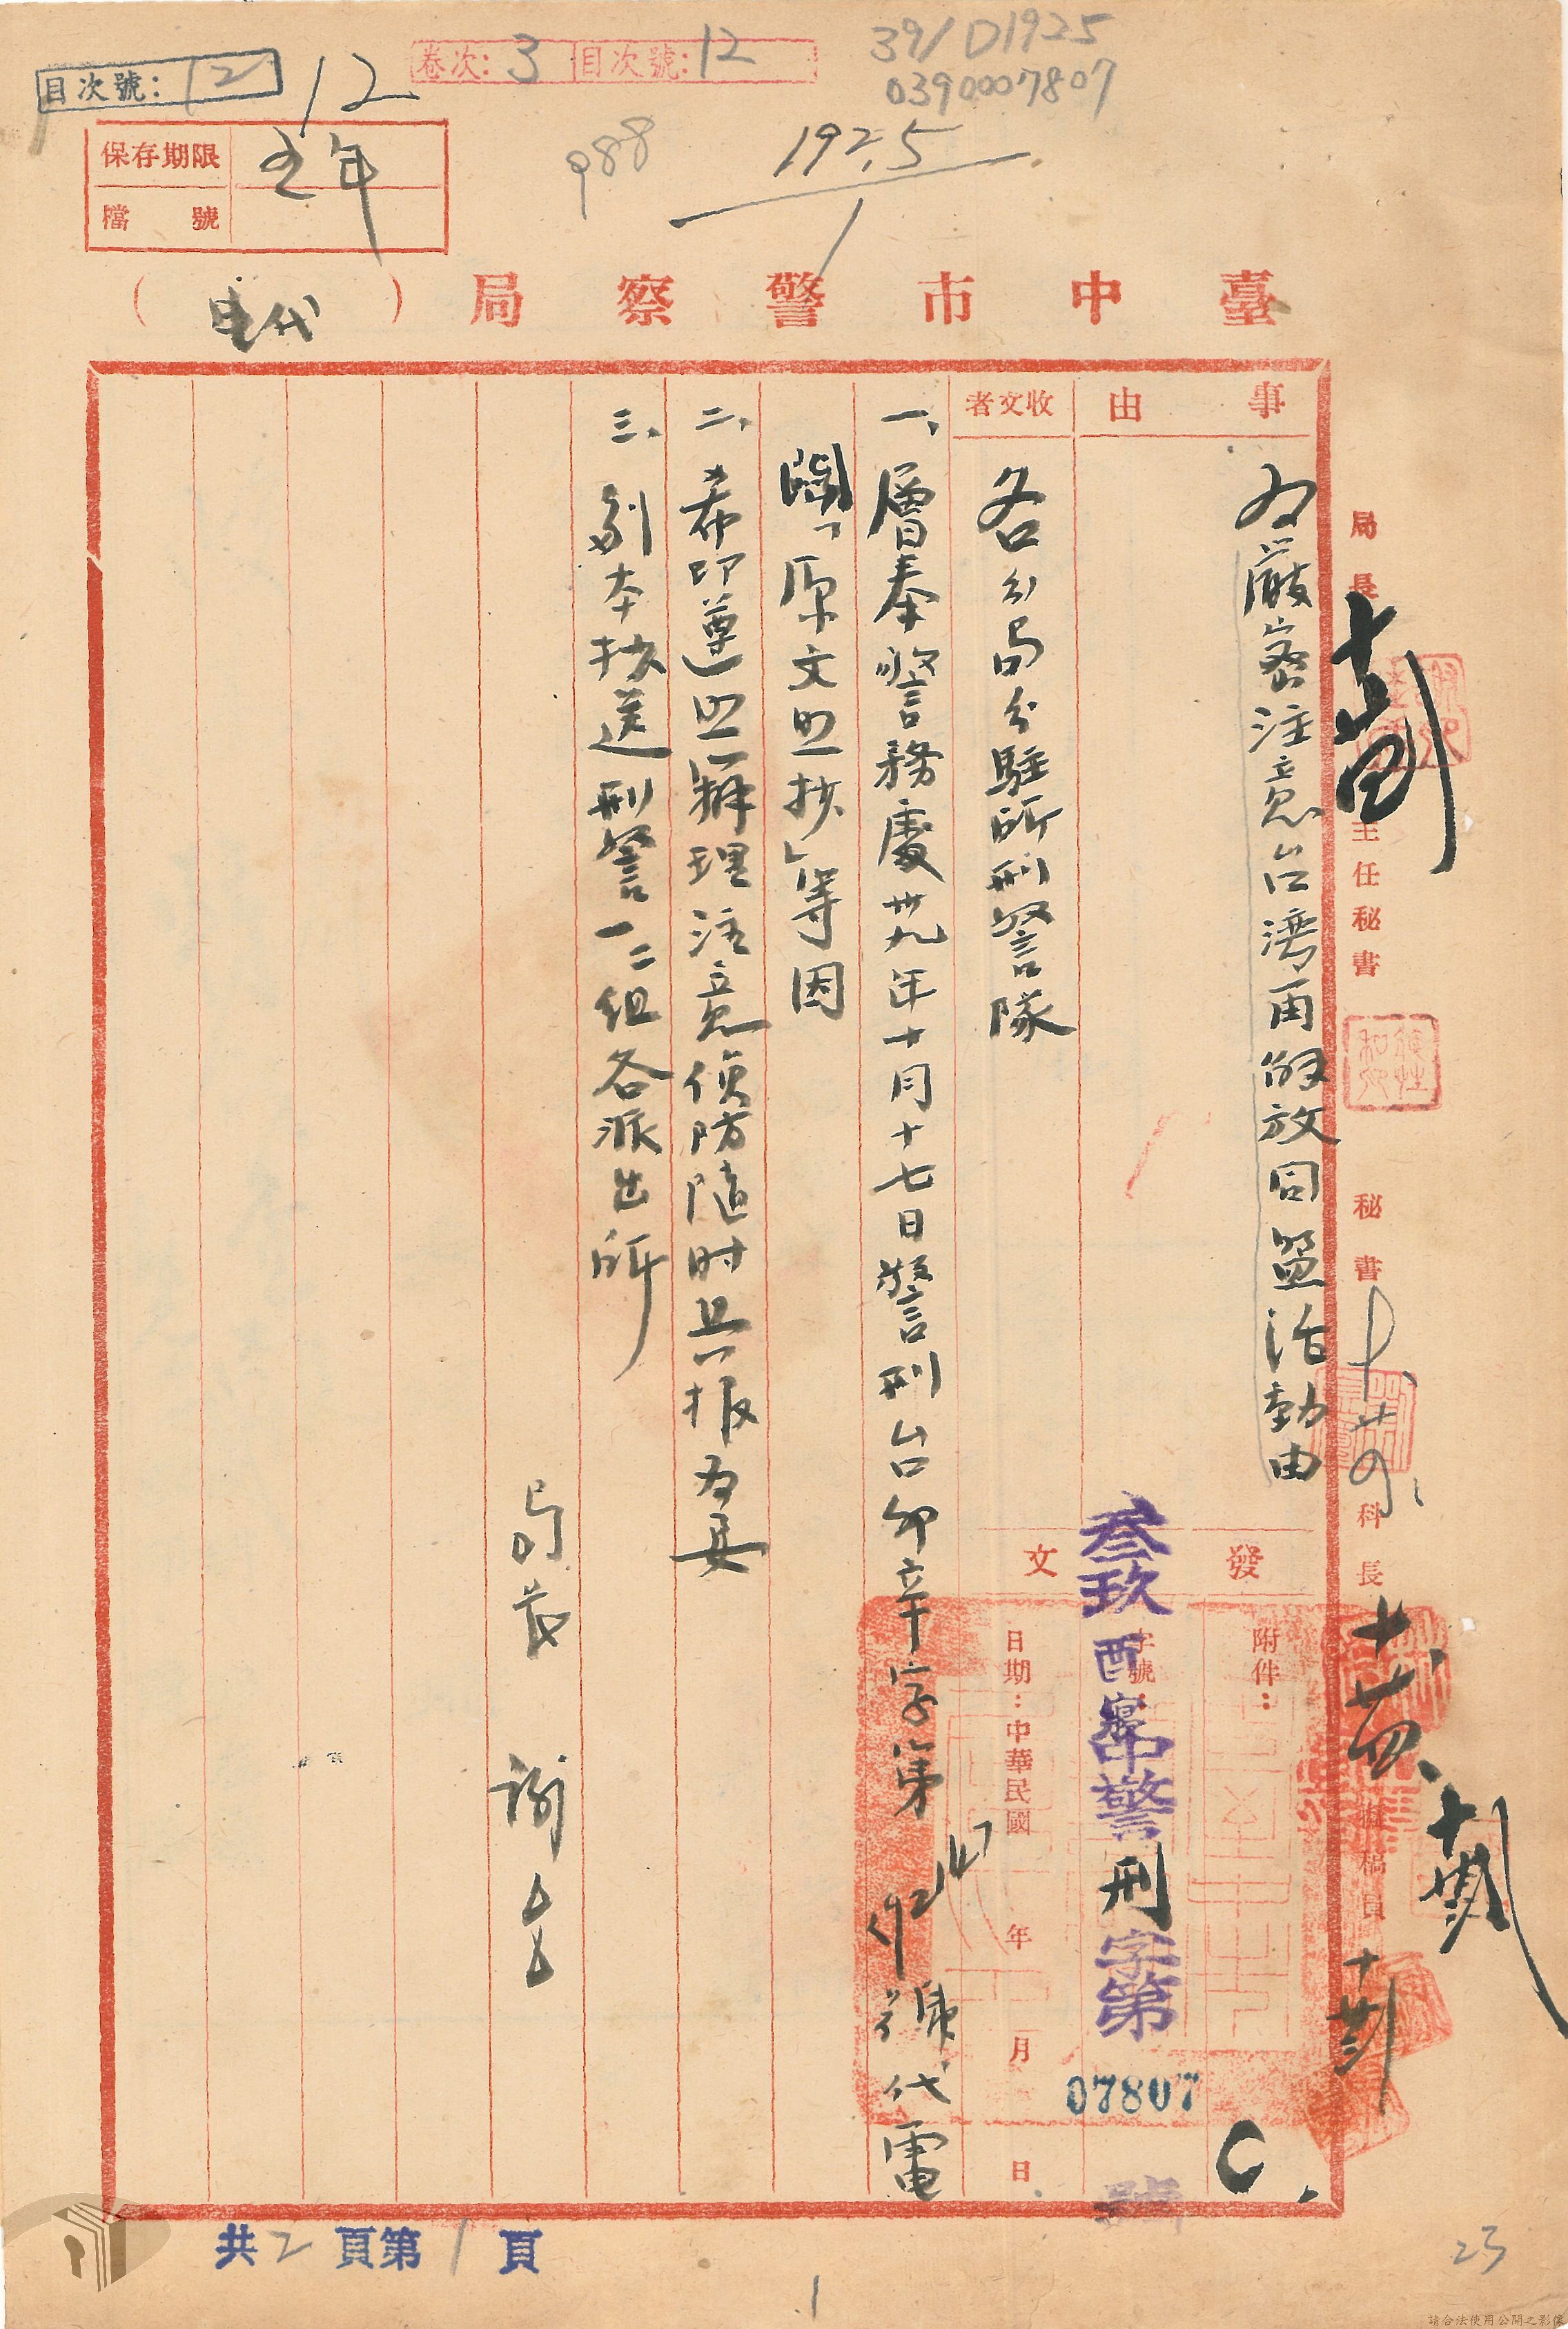 目次號：12
12
卷次：3 目次號：12
39/D1925
0390007807
保存期限 五年
檔號
988
1925
臺中市警察局（代电）
事由
為嚴密注意台灣再解放同盟活動由
收文者
各分局分駐所刑警隊
發文
附件：
字號：
叁玖酉 中警刑字第07807號
日期：中華民國 年 月 日
一、層奉警務處卅九年十月十七日警刑台卯辛字第92147號代電
開「原文照抄」等因
二、希即遵照辦理注意偵防隨時具报為要
三、副本抄送刑警一二組各派出所
局長 謝
局長
主任秘書
秘書
科長
擬稿員
共2頁第1頁
1
23
請合法使用公開之影像